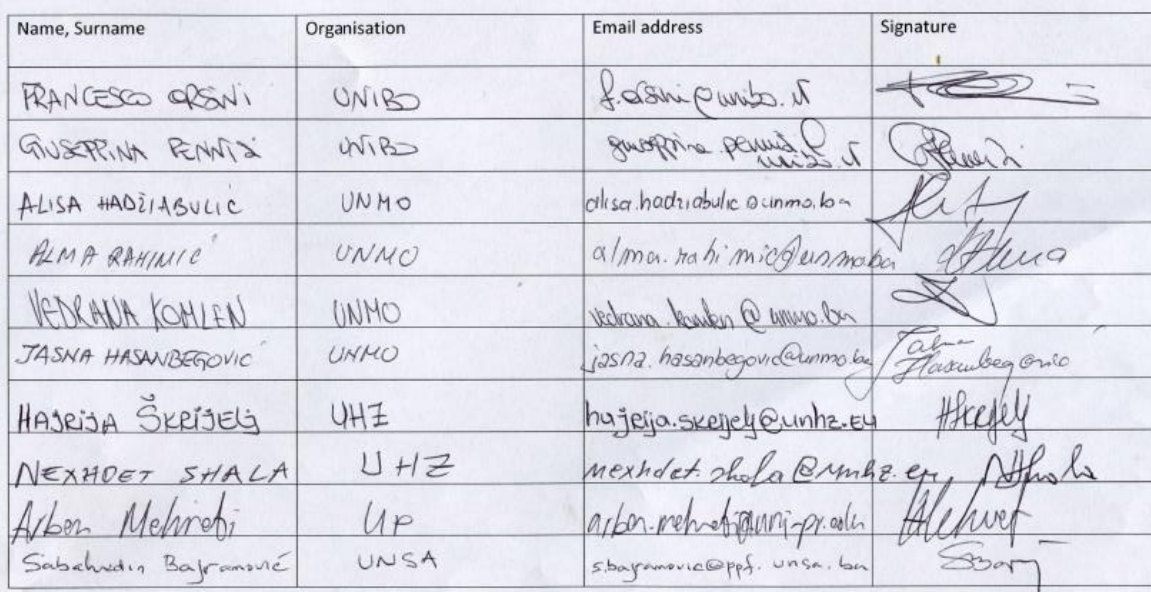 Name, Surname Organisation Email address Signature
FRANCESCO ORSINI UNIBO f.orsini@unibo.it
GIUSEPPINA PENNISI UNIBO giuseppina.pennisi@
unibo.it
ALISA HADŽIABULIC UNMO alisa.hadziabulic@unmo.ba
ALMA RAHIMIĆ UNMO alma.rahimic@unmo.ba Alma
VEDRANA KOMLEN UNMO vedrana.komlen@unmo.ba
JASNA HASANBEGOVIĆ UNMO jasna.hasanbegovic@unmo.ba Jasna
Hasanbegović
HAJRIJA ŠKRIJELJ UHZ hajrija.skrijelj@unhz.eu HSkrijelj
NEXHDET SHALA UHZ nexhdet.shala@unhz.eu NShala
Arben Mehmeti UP arben.mehmeti@uni-pr.edu AMehmet
Sabahudin Bajramović UNSA s.bajramovic@ppf.unsa.ba